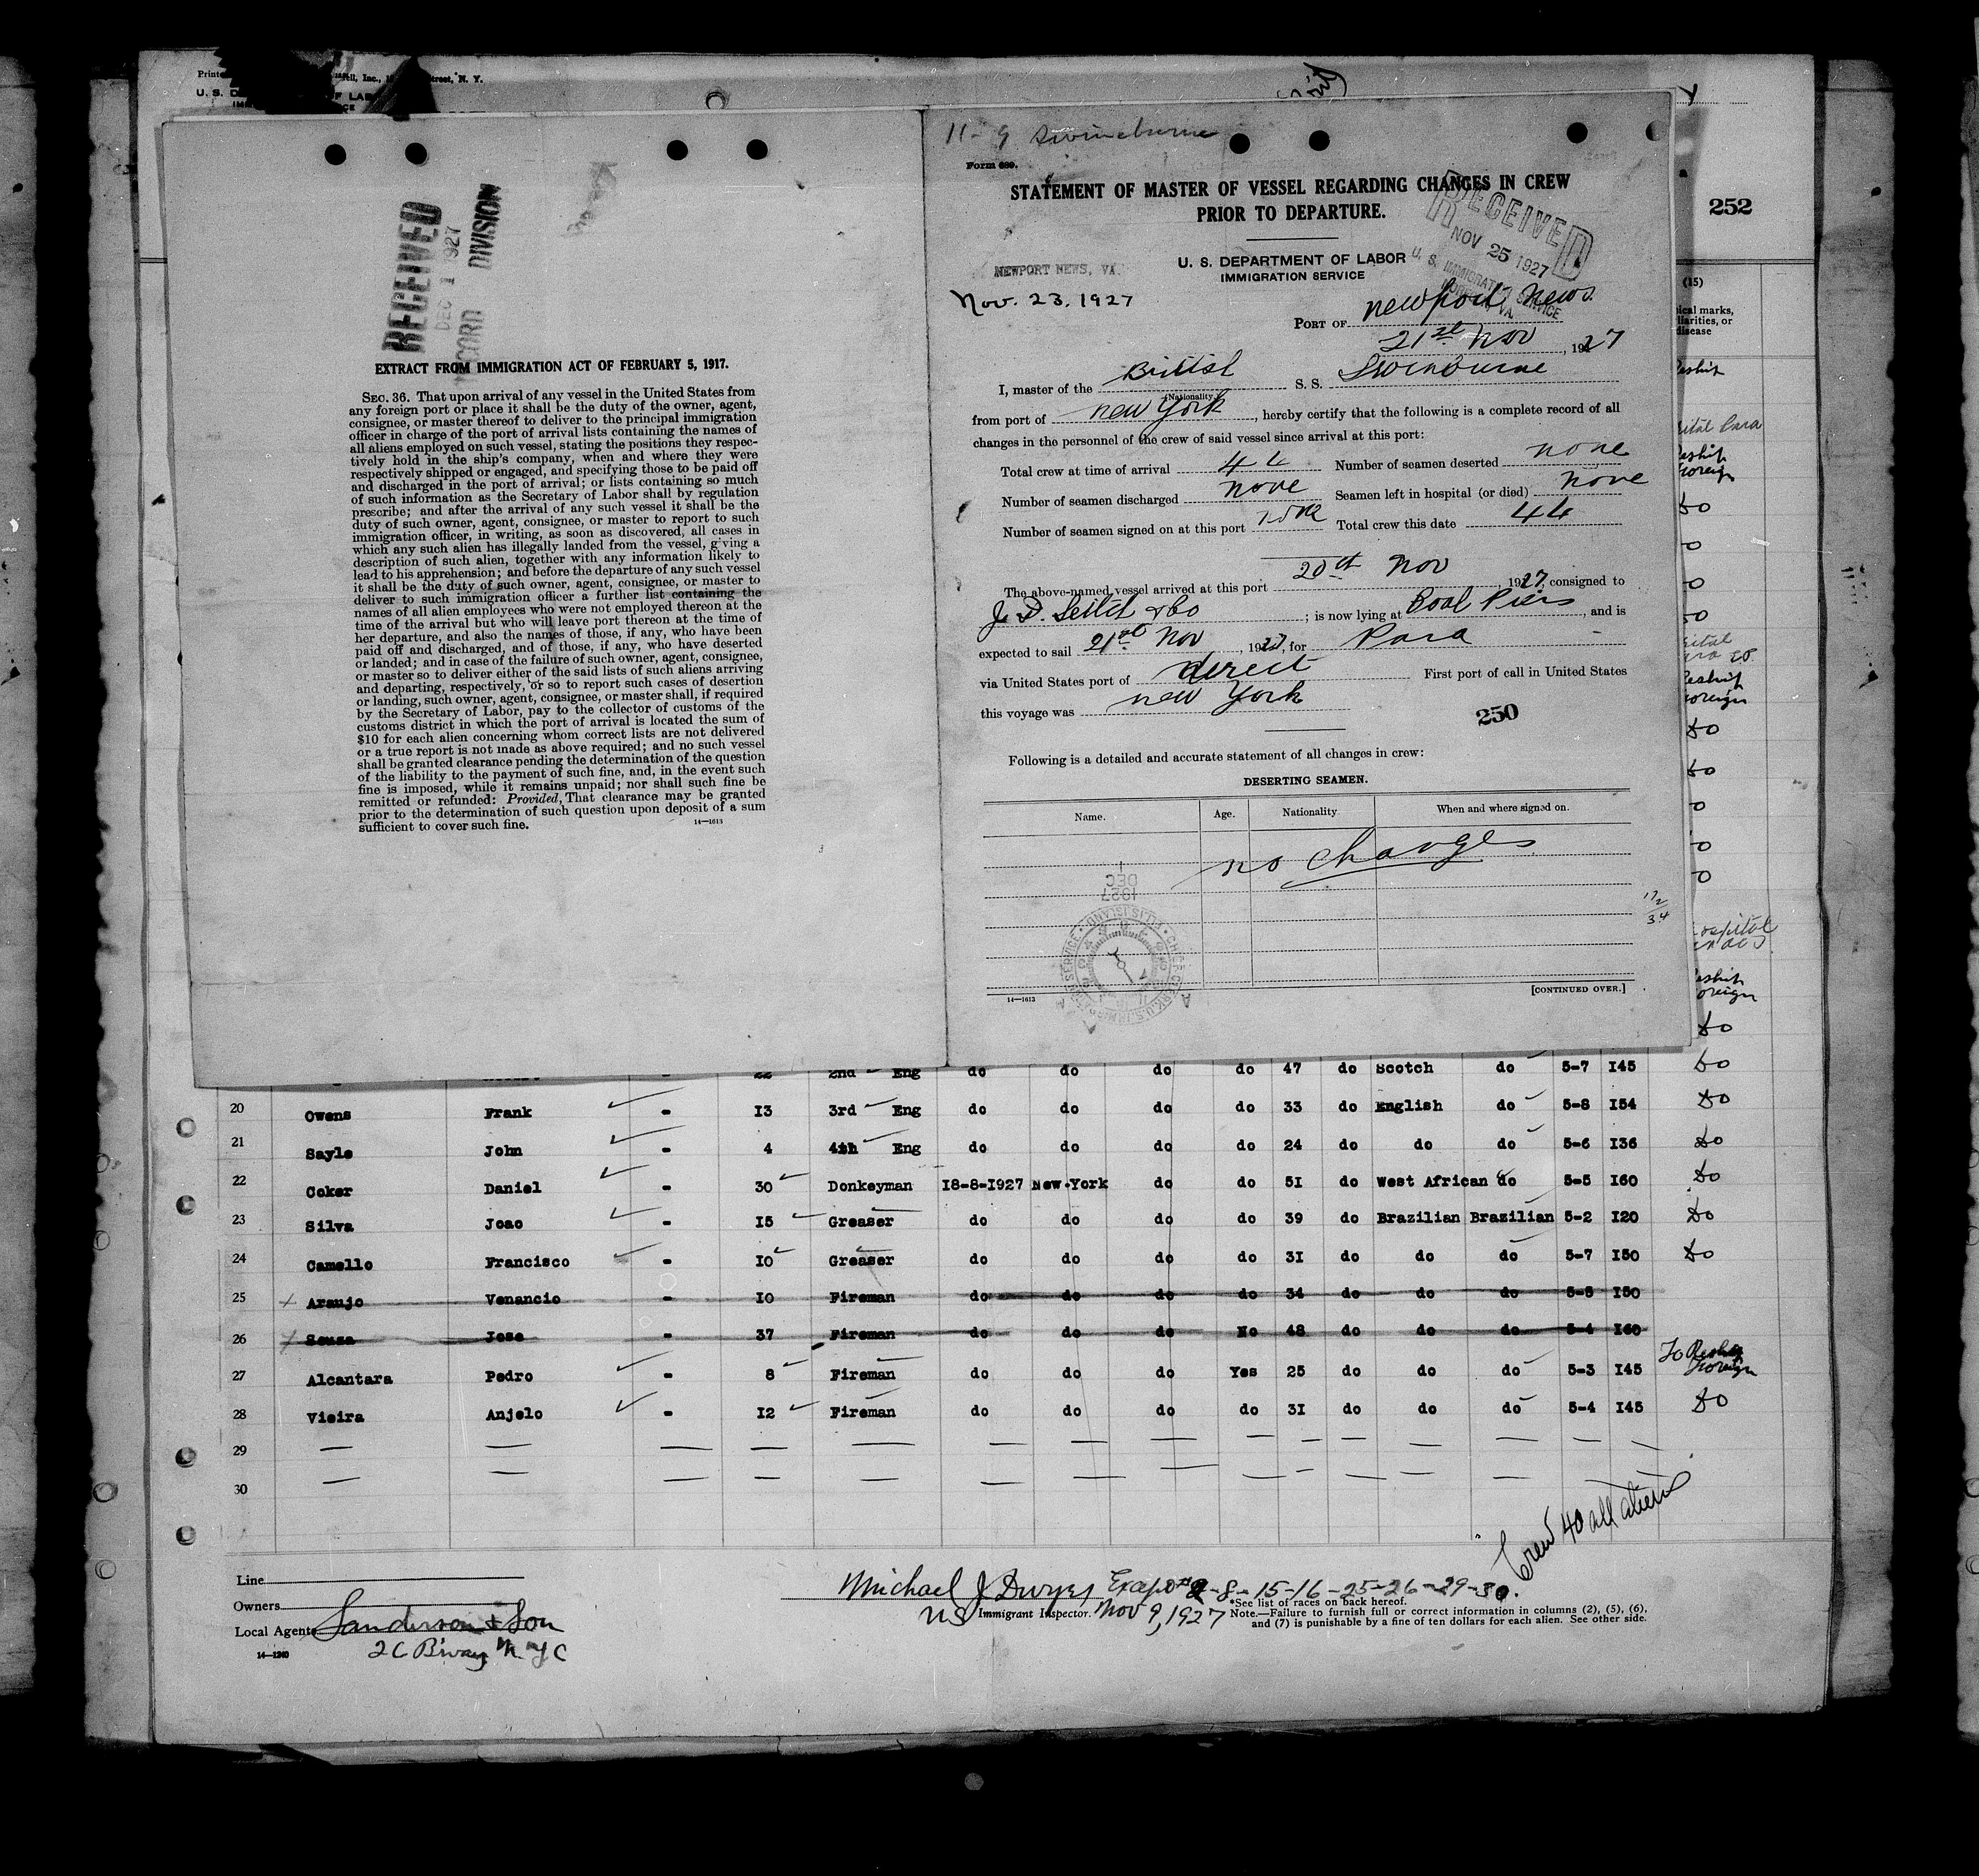 U. S.
Street, N. Y.
RECEIVED
DEC 1 1927
DIVISION
EXTRACT FROM IMMIGRATION ACT OF FEBRUARY 5, 1917.
SEC. 36. That upon arrival of any vessel in the United States from
any foreign port or place it shall be the duty of the owner, agent,
consignee, or master thereof to deliver to the principal immigration
officer in charge of the port of arrival lists containing the names of
all aliens employed on such vessel, stating the positions they respec-
tively hold in the ship's company, when and where they were
respectively shipped or engaged, and specifying those to be paid off
and discharged in the port of arrival; or lists containing so much
of such information as the Secretary of Labor shall by regulation
prescribe; and after the arrival of any such vessel it shall be the
duty of such owner, agent, consignee, or master to report to such
immigration officer, in writing, as soon as discovered, all cases in
which any such alien has illegally landed from the vessel, giving a
description of such alien, together with any information likely to
lead to his apprehension; and before the departure of any such vessel
it shall be the duty of such owner, agent, consignee, or master to
deliver to such immigration officer a further list containing the
names of all alien employees who were not employed thereon at the
time of the arrival but who will leave port thereon at the time of
her departure, and also the names of those, if any, who have been
paid off and discharged, and of those, if any, who have deserted
or landed; and in case of the failure of such owner, agent, consignee,
or master so to deliver either of the said lists of such aliens arriving
and departing, respectively, or so to report such cases of desertion
or landing, such owner, agent, consignee, or master shall, if required
by the Secretary of Labor, pay to the collector of customs of the
customs district in which the port of arrival is located the sum of
$10 for each alien concerning whom correct lists are not delivered
or a true report is not made as above required; and no such vessel
shall be granted clearance pending the determination of the question
of the liability to the payment of such fine, and, in the event such
fine is imposed, while it remains unpaid; nor shall such fine be
remitted or refunded: Provided, That clearance may be granted
prior to the determination of such question upon deposit of a sum
sufficient to cover such fine.
14—1613
11-9 Swineburne
Form 689.
STATEMENT OF MASTER OF VESSEL REGARDING CHANGES IN CREW
PRIOR TO DEPARTURE.
RECEIVED
NOV 25 1927
U. S. IMMIGRATION SERVICE
NORFOLK, VA.
U. S. DEPARTMENT OF LABOR
IMMIGRATION SERVICE
NEWPORT NEWS, VA.
Nov. 23, 1927
PORT OF newport news
21st Nov, 1927
I, master of the British S. S. Swinburne
(Nationality.)
from port of new York, hereby certify that the following is a complete record of all
changes in the personnel of the crew of said vessel since arrival at this port:
Total crew at time of arrival 44 Number of seamen deserted none
Number of seamen discharged none Seamen left in hospital (or died) none
Number of seamen signed on at this port Total crew this date 44
The above-named vessel arrived at this port 20th Nov, 1927, consigned to
; is now lying at Coal Piers, and is
expected to sail 21st Nov, 1927, for Para
via United States port of direct First port of call in United States
this voyage was new York
250
Following is a detailed and accurate statement of all changes in crew:
DESERTING SEAMEN.
Name. Age. Nationality When and where signed on.
no changes
DEC
1927
14—1613
[CONTINUED OVER.]
252
(15)
2nd Eng do do do do 47 do Scotch do 5-7 145 Do
20 Owens Frank - 13 3rd Eng do do do do 33 do English do 5-8 154 Do
21 Sayle John - 4 4th Eng do do do do 24 do do do 5-6 136 Do
22 Coker Daniel - 30 Donkeyman 18-8-1927 New-York do do 51 do West African do 5-5 160 Do
23 Silva Joao - 15 Greaser do do do do 39 do Brazilian Brazilian 5-2 120 Do
24 Camello Francisco - 10 Greaser do do do do 31 do do do 5-7 150 Do
25 Araujo Venancio - 10 Fireman do do do do 34 do do do 5-8 150
26 Souza Jose - 37 Fireman do do do No 48 do do do 5-4 160
27 Alcantara Pedro - 8 Fireman do do do Yes 25 do do do 5-3 145 To Reship Foreign
28 Vieira Anjelo - 12 Fireman do do do do 31 do do do 5-4 145 Do
29
30
Crew 40 all aliens
Line
Owners
Local Agents Sanderson & Son
26 B'way N Y C
14—1240
Michael J Dwyer Except # 2-8-15-16-25-26-29-30.
US Immigrant Inspector. Nov 9, 1927
*See list of races on back hereof.
Note.—Failure to furnish full or correct information in columns (2), (5), (6),
and (7) is punishable by a fine of ten dollars for each alien. See other side.